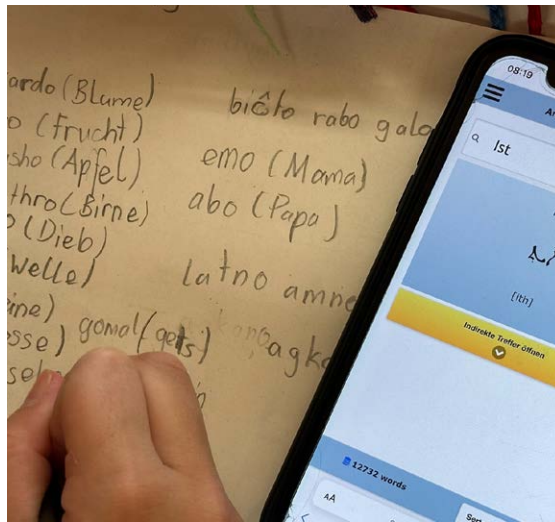 ardo (Blume)
o (Frucht)
sho (Apfel)
thro (Birne)
o (Dieb)
Welle)
ine)
sse)
biôto rabo galo
emo (Mama)
abo (Papa)
latno amne
gomal (gets)
agka
08:19
Ist
[ith]
Indirekte Treffer öffnen
12732 words
AA